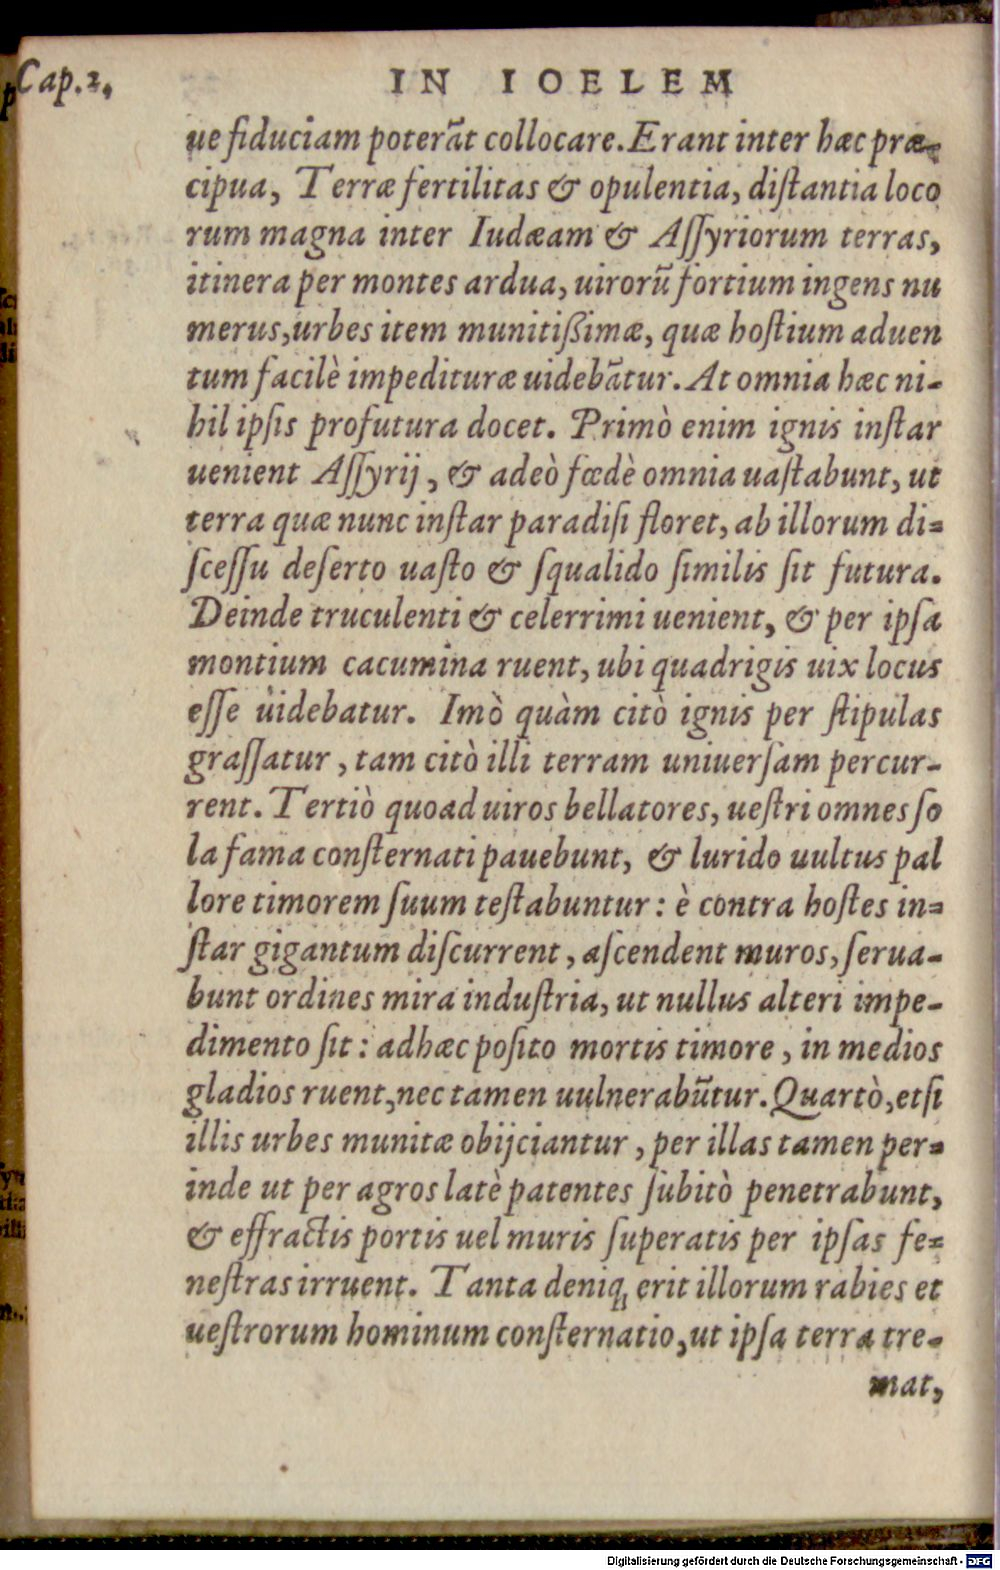 Cap. 2,
IN IOELEM
ue fiduciam poterāt collocare. Erant inter hæc præ-
cipua, Terræ fertilitas & opulentia, diſtantia loco
rum magna inter Iudæam & Aſſyriorum terras,
itinera per montes ardua, uirorū fortium ingens nu
merus, urbes item munitißimæ, quæ hoſtium aduen
tum facilè impedituræ uidebātur. At omnia hæc ni-
hil ipſis profutura docet. Primò enim ignis inſtar
uenient Aſſyrij, & adeò fœdè omnia uaſtabunt, ut
terra quæ nunc inſtar paradiſi floret, ab illorum di-
ſceſſu deſerto uaſto & ſqualido ſimilis ſit futura.
Deinde truculenti & celerrimi uenient, & per ipſa
montium cacumina ruent, ubi quadrigis uix locus
eſſe uidebatur. Imò quàm citò ignis per ſtipulas
graſſatur, tam citò illi terram uniuerſam percur-
rent. Tertiò quoad uiros bellatores, ueſtri omnes ſo
la fama conſternati pauebunt, & lurido uultus pal
lore timorem ſuum teſtabuntur: è contra hoſtes in-
ſtar gigantum diſcurrent, aſcendent muros, ſerua-
bunt ordines mira induſtria, ut nullus alteri impe-
dimento ſit: adhæc poſito mortis timore, in medios
gladios ruent, nec tamen uulnerabūtur. Quartò, etſi
illis urbes munitæ obijciantur, per illas tamen per-
inde ut per agros latè patentes ſubitò penetrabunt,
& effractis portis uel muris ſuperatis per ipſas fe-
neſtras irruent. Tanta deniq; erit illorum rabies et
ueſtrorum hominum conſternatio, ut ipſa terra tre-
mat,
Digitalisierung gefördert durch die Deutsche Forschungsgemeinschaft - DFG